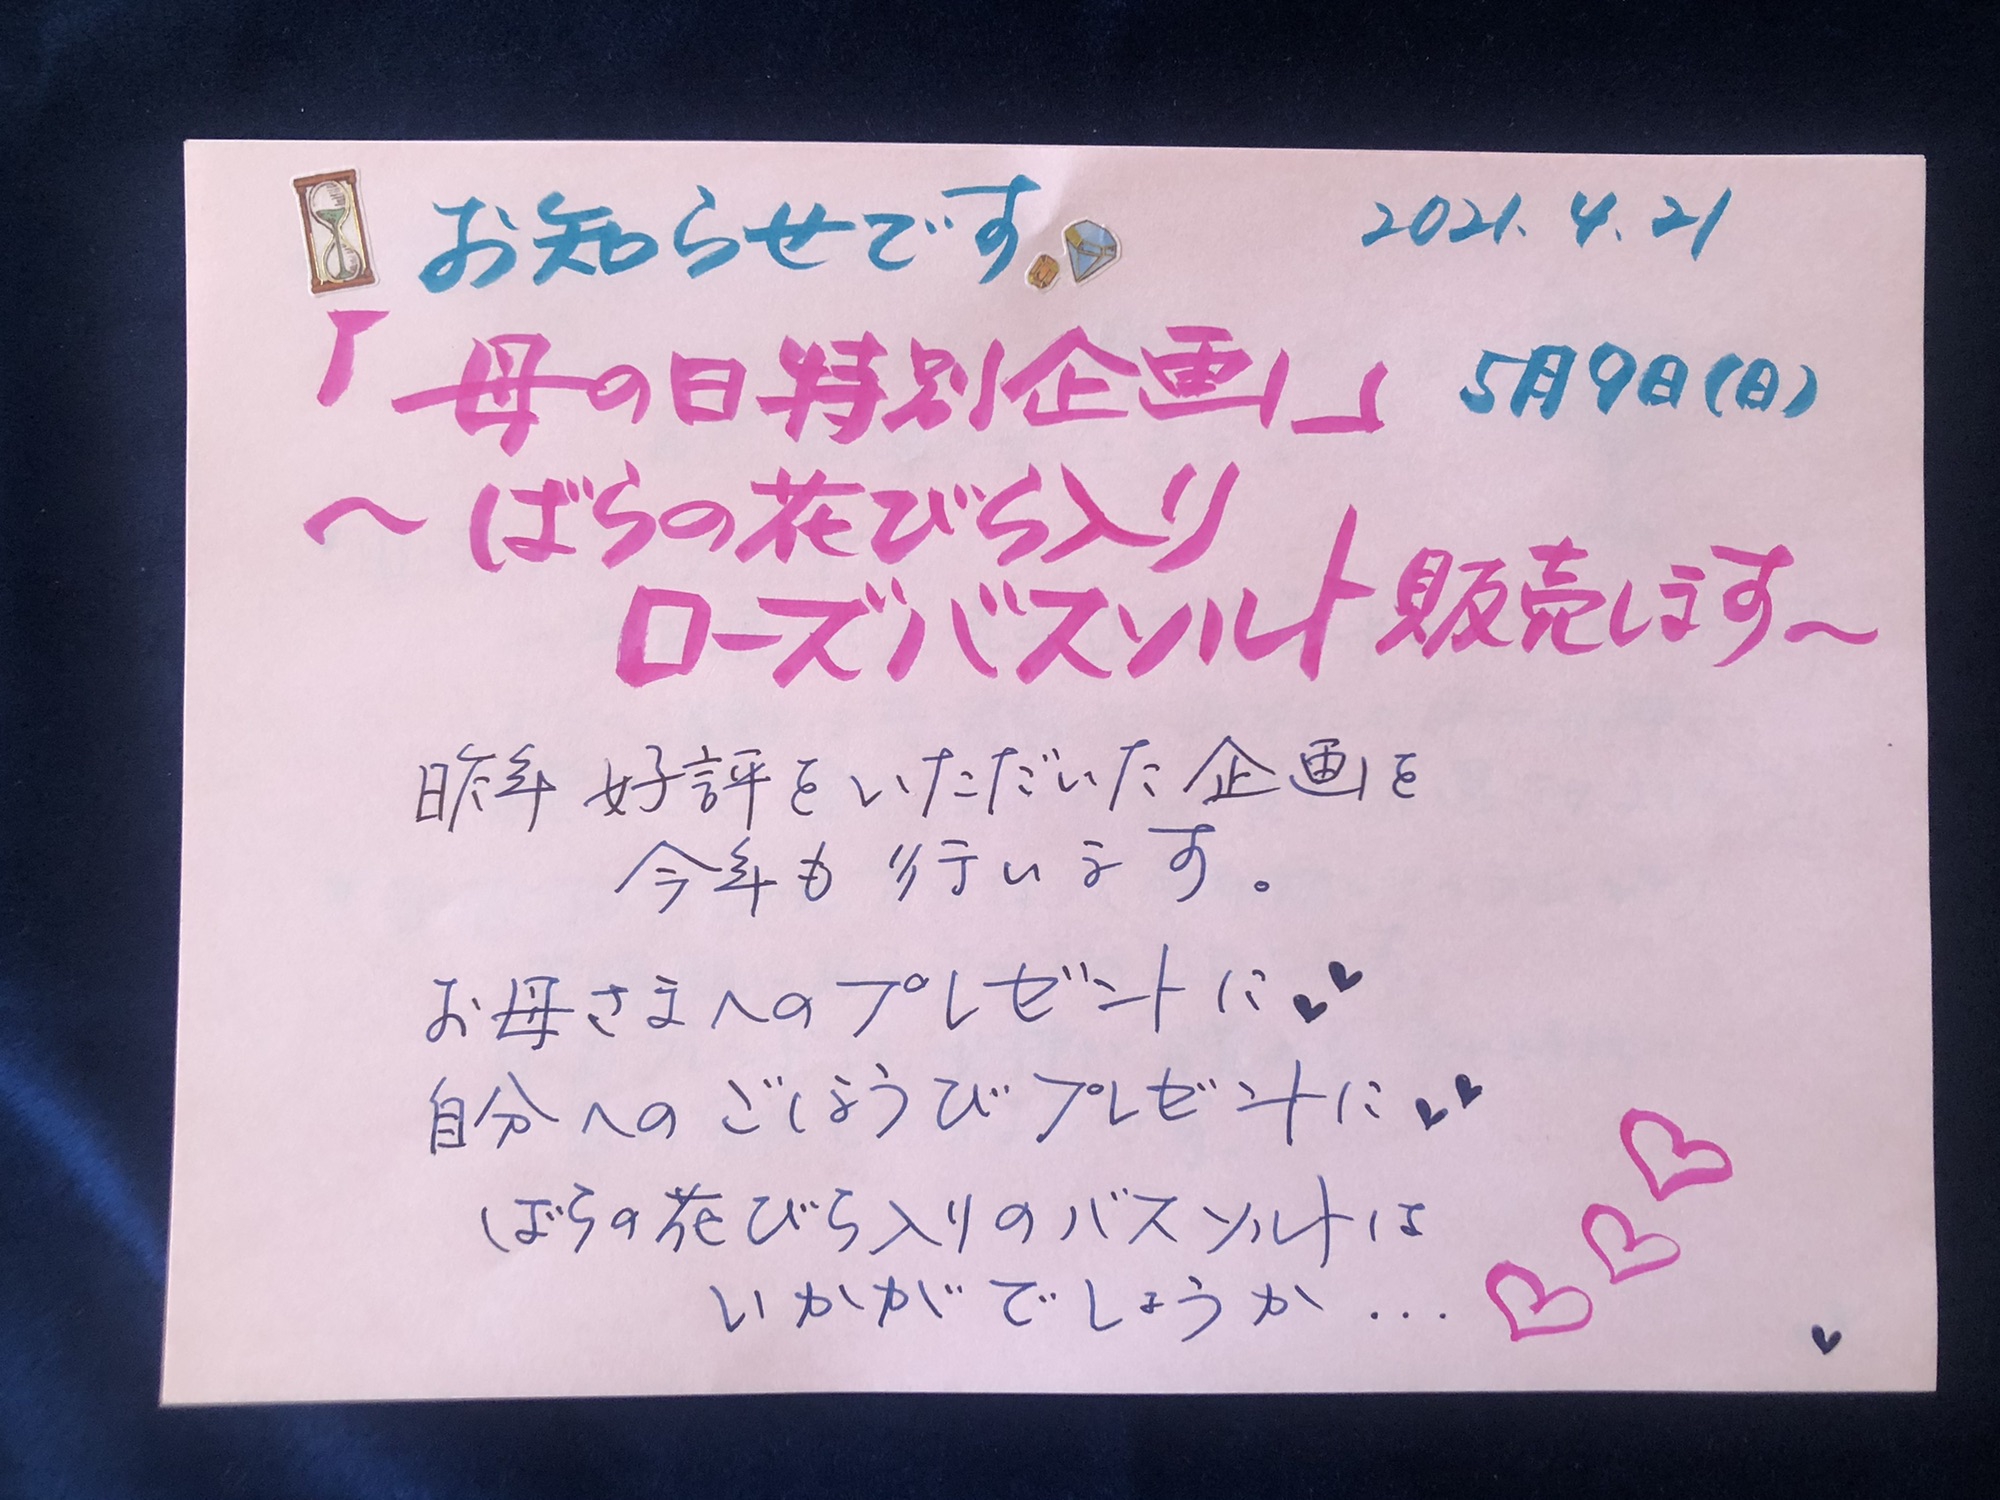 お知らせです。 2021.4.21
「母の日特別企画」 5月9日(日)
～ばらの花びら入り
ローズバスソルト販売します～
昨年好評をいただいた企画を
今年も行います。
お母さまへのプレゼントに
自分へのごほうびプレゼントに
ばらの花びら入りのバスソルトは
いかがでしょうか...